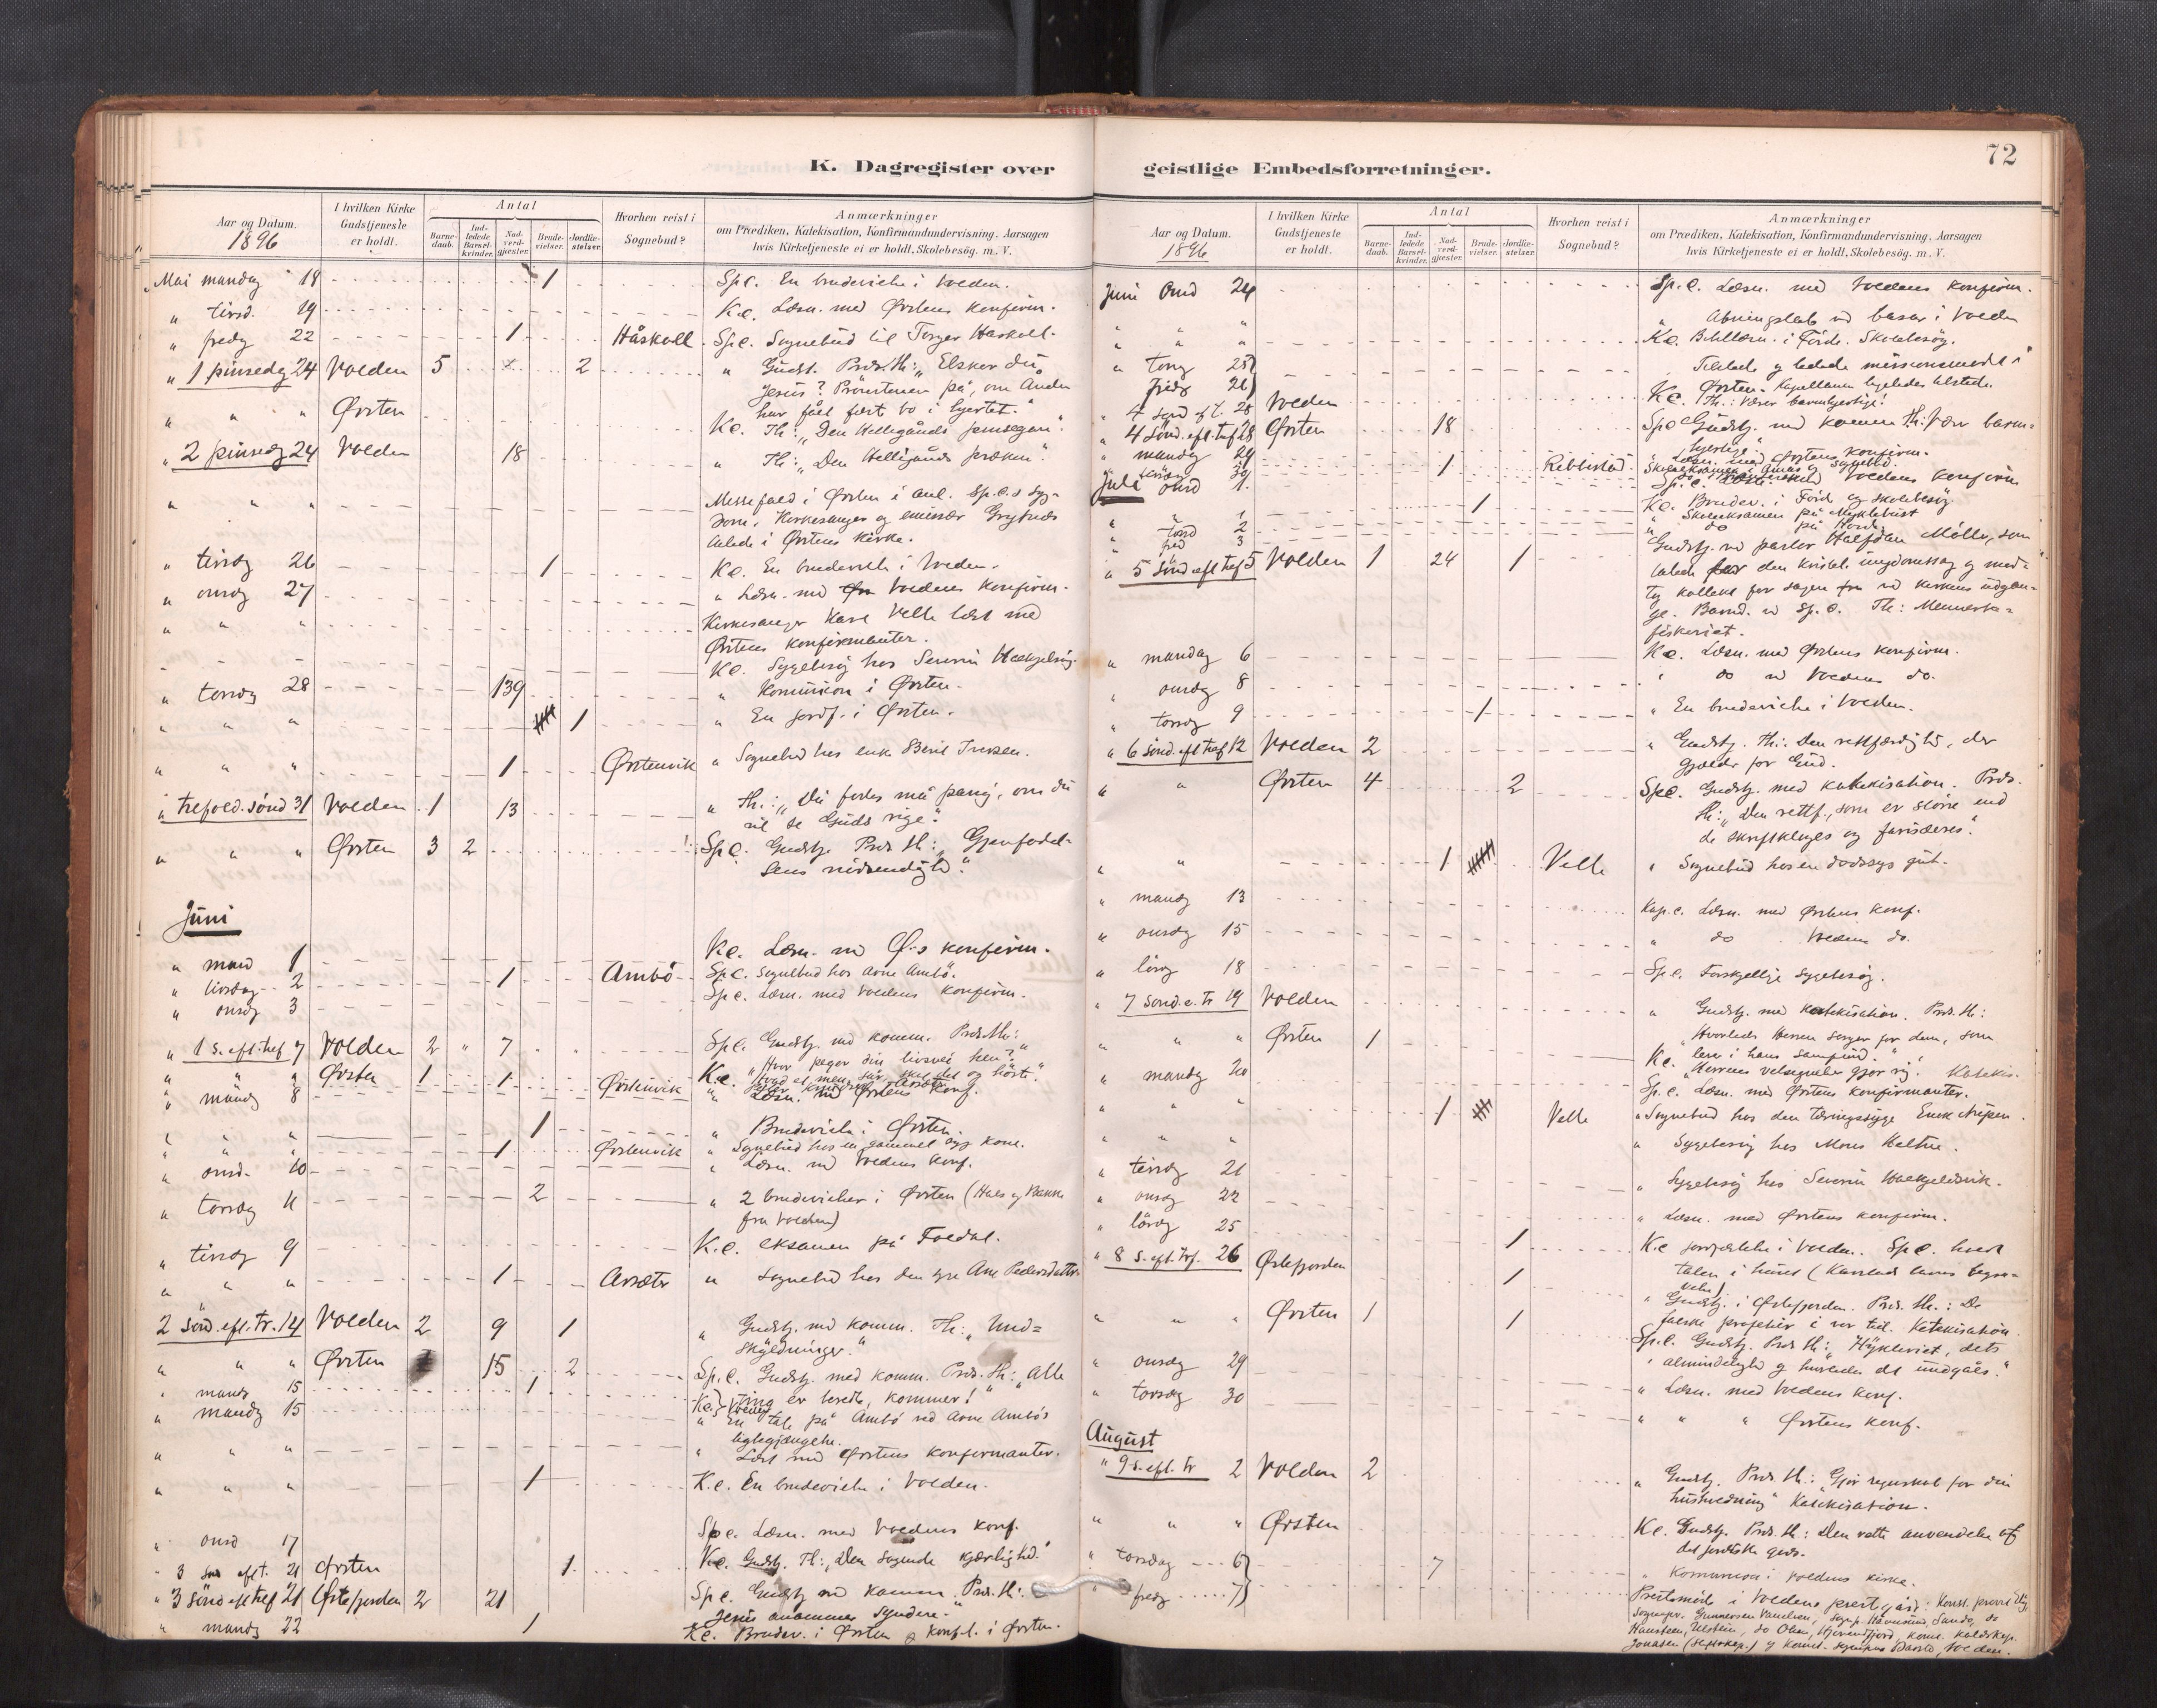 K. Dagregister over
Aar og Datum.
1896
I hvilken Kirke
Gudstjeneste
er holdt.
Antal
Barne-
daab.
Ind-
ledede
Barsel-
kvinder.
Nad-
verd-
gjæster.
Brude-
vielser.
Jordfæ-
stelser.
Hvorhen reist i
Sognebud?
Anmærkninger
om Præediken, Katekisation, Konfirmandundervisning. Aarsagen
hvis Kirketjeneste ei er holdt, Skolebesög. m. V.
Mai mandag 18 1 Sp.c. En brudevielse i Volden.
" tirsd. 19 K.c. Læsn. med Ørstens konfirm.
" fredg 22 1 Håskoll Sp.c. Sognebud til Torger Haskoll.
" 1 pinsedg 24 Volden 5 2 " Gudst. Præd. th: "Elsker du
Jesus? Prøvstenen på, om Anden
har fået fært bo i hjertet."
" " " Ørsten K.c. Th: "Den Helligånds pinsegave."
" 2 pinsedg 24 Volden 18 " Th: "Den Helligånds præken".
" " " Messefald i Ørsten i anl. Sp.c.s syg-
dom. Kirkesanger og emissær
talede i Ørstens kirke.
" tirsdg 26 1 K.c. En brudevielse i Volden.
" onsdg 27 " Læsn. med Voldens konfirm.
" " " Kirkesanger Kare Velle læst med
Ørstens konfirmanter.
K.c. Sygebesøg hos Severin
" torsdg 28 139 " Kommunion i Ørsten.
" " " 1 " En jordf. i Ørsten.
" " " 1 Ørstenvik " Sognebud hos enk Berit Iversen.
" trefold. sönd 31 Volden 1 13 " Th: "Du fødes må påny, om du
vil se Guds rige."
" " " Ørsten 3 2 Sp.c. Gudstj. Præd. th: "Gjenfødel-
sens nødvendighed."
Juni
" mand 1 K.c. Læsn. med Ø.s konfirm.
" tirsdag 2 1 Ambö Sp.c. Sognebud hos Arne Ambö.
" onsdg 3 Sp.c. Læsn. med Voldens konfirm.
" 1 s. eft. tref 7 Volden 2 " 7 Sp.c. Gudstj. med komm. Præd. th:
"Hvor peger din livsvei hen?"
" " " Ørsten 1 1 Ørstenvik K.c. "Hvad et menneske sår, skal det og höste."
" mandg 8 " Læsn. med Ørstens konf.
" " " 1 " Brudevielse i Ørsten.
" " " 1 Ørstenvik " Sognebud hos en gammel syg kone.
" onsd. 10 " Læsn. med Voldens konf.
" torsdg 11 2 " 2 brudevielser i Ørsten (Haes og Bakke
fra Volden)
" tirsdg 9 K.c. eksamen på Folddal.
" " " 1 Arsæter " Sognebud hos den syge Ane Pedersdatter
2 sönd. eft. tr. 14 Volden 2 9 1 " Gudstj. med komm. Th: "Und=
skyldninger."
" " " Ørsten 15 2 Sp.c. Gudstj. med komm. Præd. th: "Alle
ting er beredte, kommer!"
" mandg 15 1 K.c.
" mandg 15 " En tale på Ambö ved Arne Ambös
ligbegjængelse.
" " " " Læst med Ørstens konfirmanter.
" " " 1 K.c. En brudevielse i Volden.
" onsd 17 Sp.c. Læsn. med Voldens konf.
" 3 søn eft. 21 Ørsten 1 K.c. Gudstj. Th: "Den søgende kjærlighed."
" 3 sönd eft tref 21 Østefjorden 2 21 Sp.c. Gudstj. med komm. Præd. th:
Jesus annammer syndere."
" mandg 22 1 K.c. Brudev. i Ørsten og konf.l. i Ørsten.
geistlige Embedsforretninger.
72
Aar og Datum.
1896
I hvilken Kirke
Gudstjeneste
er holdt.
Antal
Barne-
daab.
Ind-
ledede
Barsel-
kvinder.
Nad-
verd-
gjæster.
Brude-
vielser.
Jordfæ-
stelser.
Hvorhen reist i
Sognebud?
Anmærkninger
om Prædiken, Katekisation, Konfirmandundervisning. Aarsagen
hvis Kirketjeneste ei er holdt, Skolebesög. m. V.
Juni Onsd 24 Sp.c. Læsn. med Voldens konfirm.
" " " " Åbningstale ved basar i Volden
" " " K.c. Bibellæsn. i Förde. Skolebesög.
" torsg 25 Tilstede og ledede missionsmødet i
fredg 26 Ørsten. Kapellanen ligeledes tilstede.
" 4 sönd ef t. 28 Volden K.c. Th: Værer barmhjertige!
" 4 Sönd. eft. tref 28 Ørsten 18 Sp.c Gudstj. med komm. Th: Vær barm=
hjertige
" mandg 29 1 Reblistad Læsn. med Ørstens konfirm.
tirsdg 30
Juli onsd 1. Sp.c. Læsn. med Voldens konfirm
" " 1 1 K.c. Brudev. i Förde og skolebesög
" torsd 2 " Skoleeksamen på Myklebust
" fred 3 " do på Hovde.
" 5 Sönd eft tref 5 Volden 1 24 1 Gudstj. ved pastor Halfdan Möller, som
talede for den kristel. ungdomssag og mod=
tog kollekt for sagen ved kirkens udgan=
ge. Barned. ved Sp.c. Th: Menneske=
fiskeriet.
" mandag 6 K.c. Læsn. med Ørstens konfirm.
" onsdg 8 " do med Voldens do.
" torsdg 9 1 " En brudevielse i Volden.
" 6 sönd. eft tref 12 Volden 2 " Gudstj. Th: Den retfærdighed, der
gjælder for Gud.
" " Ørsten 4 2 Sp.c. Gudstj. med katekisation. Præd.
th: "Den rettf., som er større end
de skriftkloges og farisæeres."
" " 1 Velle " Sognebud hos en dødssyg gut.
" mandg 13 Kap.c. Læsn. med Ørstens konf.
" onsdg 15 " do Voldens do.
" lörg 18 Sp.c. Forskjellige sygebesøg.
" 7 sönd. e. tr 19 Volden " Gudstj. med katekisation. Præd. th:
"Hvorledes Herren sørger for dem, som
lever i hans samfund."
" " " Ørsten 1 K.c. "Herrens velsignelse gjør rig." Katekis.
" mandg 20 Sp.c. Læsn. med Ørstens konfirmanter.
" " " 1 Velle " Sognebud hos den tæringssyge Enok
" " " " Sygebesøg hos Mons
" tirsdg 21 " Sygebesøg hos Severin
" onsdg 22 " Læsn. med Ørstens konfirm.
" lördg 25 1 K.c jordfæstelse i Volden. Sp.c. holdt
talen i huset
" 8 s. eft. trf. 26 Østefjorden 1 " Gudstj. i Østefjorden. Præd. th: De
falske profeter i vor tid. Katekisation.
" " " Ørsten 1 1 Sp.c. Gudstj. Præd. th: "Hykleriet, dets
almindelighed og hvorledes det undgåes."
" onsdg 29 " Læsn. med Voldens konf.
" torsdg 30 " " " Ørstens konf.
August
" 9 s. eft. tr 2 Volden 2 " Gudstj. Præd. th: "Gjør regnskab for din
husholdning" Katekisation.
" " " Ørsten K.c. Gudstj. Præd. th: Den rette anvendelse af
det jordiske gods.
" torsdag 6 7 " Kommunion i Voldens kirke.
" fredg 7 Prestemöte i Voldens prestgård: